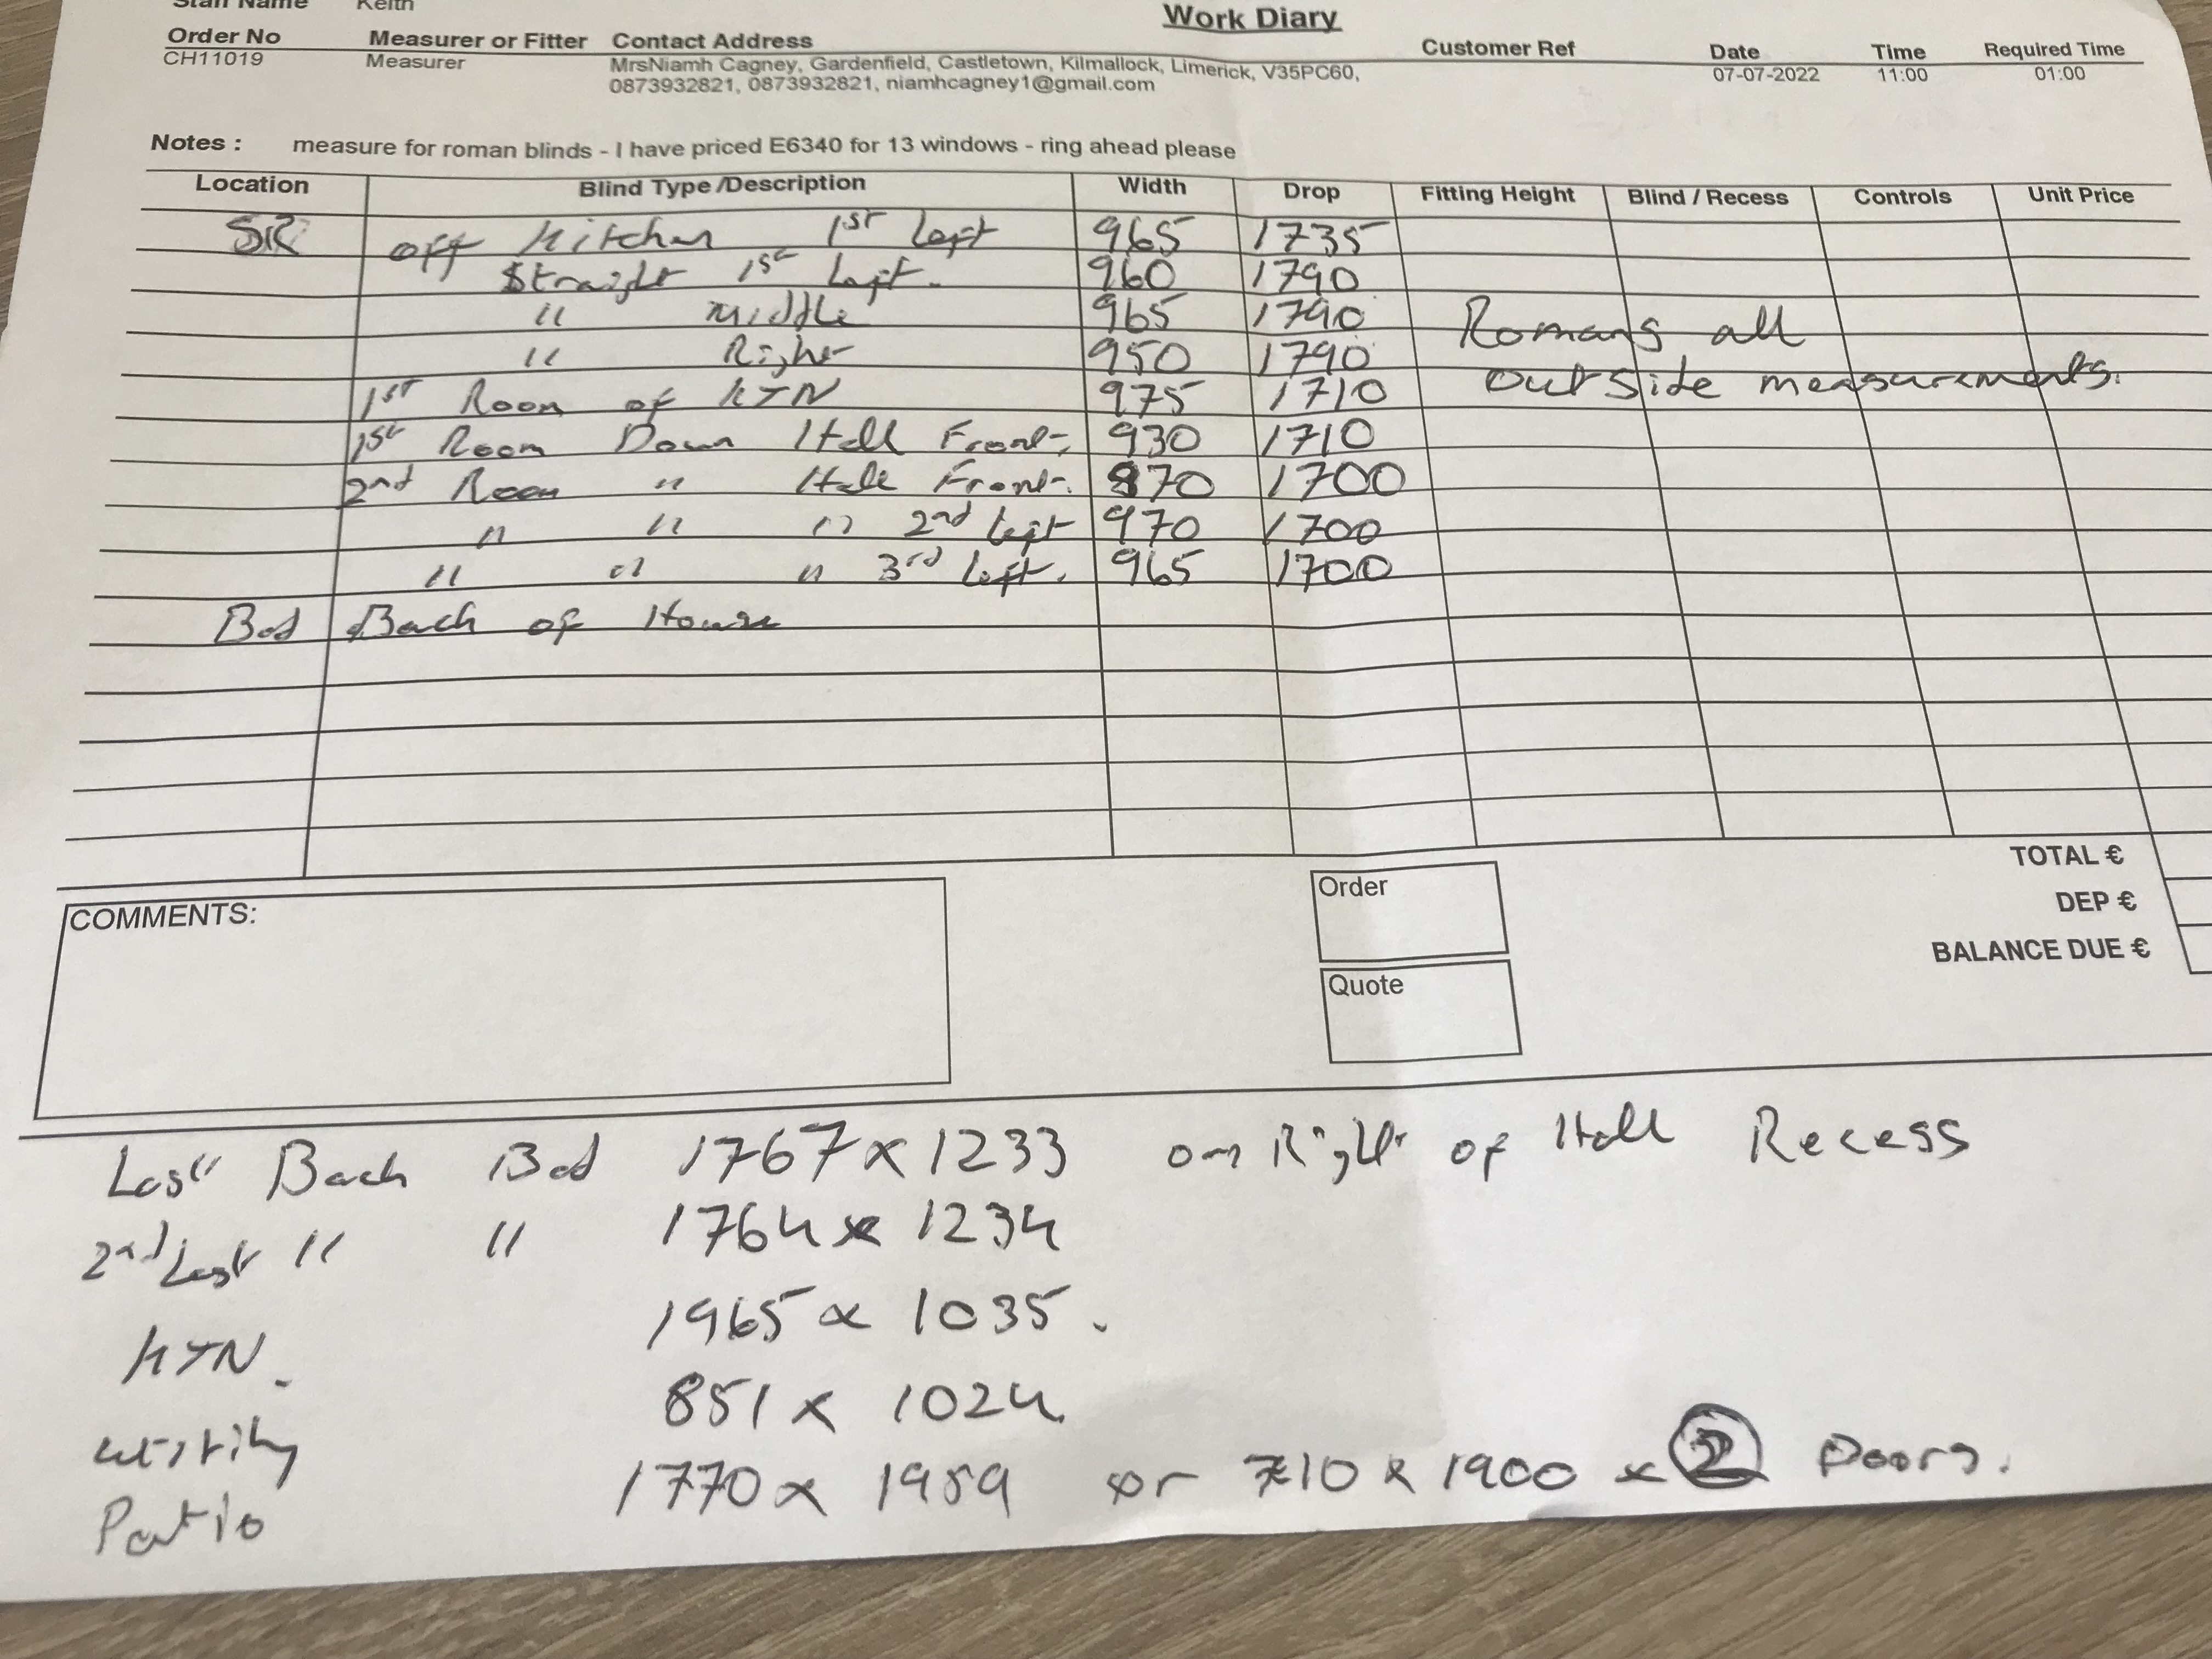 Staff Name Keith
Work Diary
Order No Measurer or Fitter Contact Address Customer Ref Date Time Required Time
CH11019 Measurer MrsNiamh Cagney, Gardenfield, Castletown, Kilmallock, Limerick, V35PC60, 07-07-2022 11:00 01:00
0873932821, 0873932821, niamhcagney1@gmail.com
Notes : measure for roman blinds - I have priced E6340 for 13 windows - ring ahead please
Location Blind Type /Description Width Drop Fitting Height Blind / Recess Controls Unit Price
SR off Kitchen 1st Left 965 1735
Straight 1st Left. 960 1790
" Middle 965 1790 Romans all
" Right 950 1790 outside measurements.
1st Room of KTN 975 1710
1st Room Down Hall Front 930 1710
2nd Room " Hall Front. 970 1700
" " " 2nd Left 970 1700
" " " 3rd Left. 965 1700
Bed Back of House
TOTAL €
COMMENTS: Order
DEP €
BALANCE DUE €
Quote
Last Back Bed 1767 x 1233 on Right of Hall Recess
2nd Last " " 1764 x 1234
KTN. 1965 x 1035.
utility 851 x 1024.
Patio 1770 x 1959 or 710 x 1900 x 2 Doors.